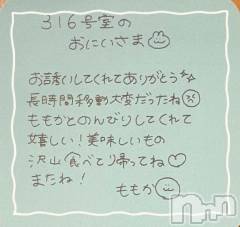 316号室の
おにいさま
お誘いしてくれてありがとう
長時間移動大変だったね
ももかとのんびりしてくれて
嬉しい！美味しいもの
沢山食べて帰ってね♡
またね！
ももか